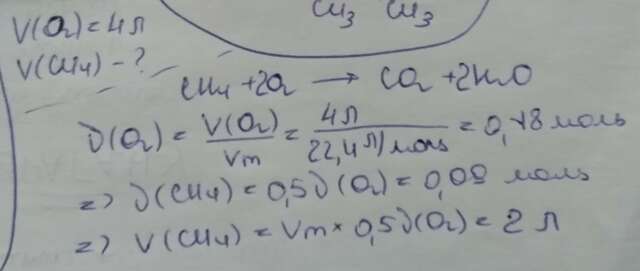 CH3 CH3
V(O2) = 4л
V(CH4) - ?
CH4 + 2O2 → CO2 + 2H2O
ν(O2) = V(O2)/Vm = 4л/22,4 л/моль = 0,18 моль
=> ν(CH4) = 0,5ν(O2) = 0,09 моль
=> V(CH4) = Vm × 0,5ν(O2) = 2 л